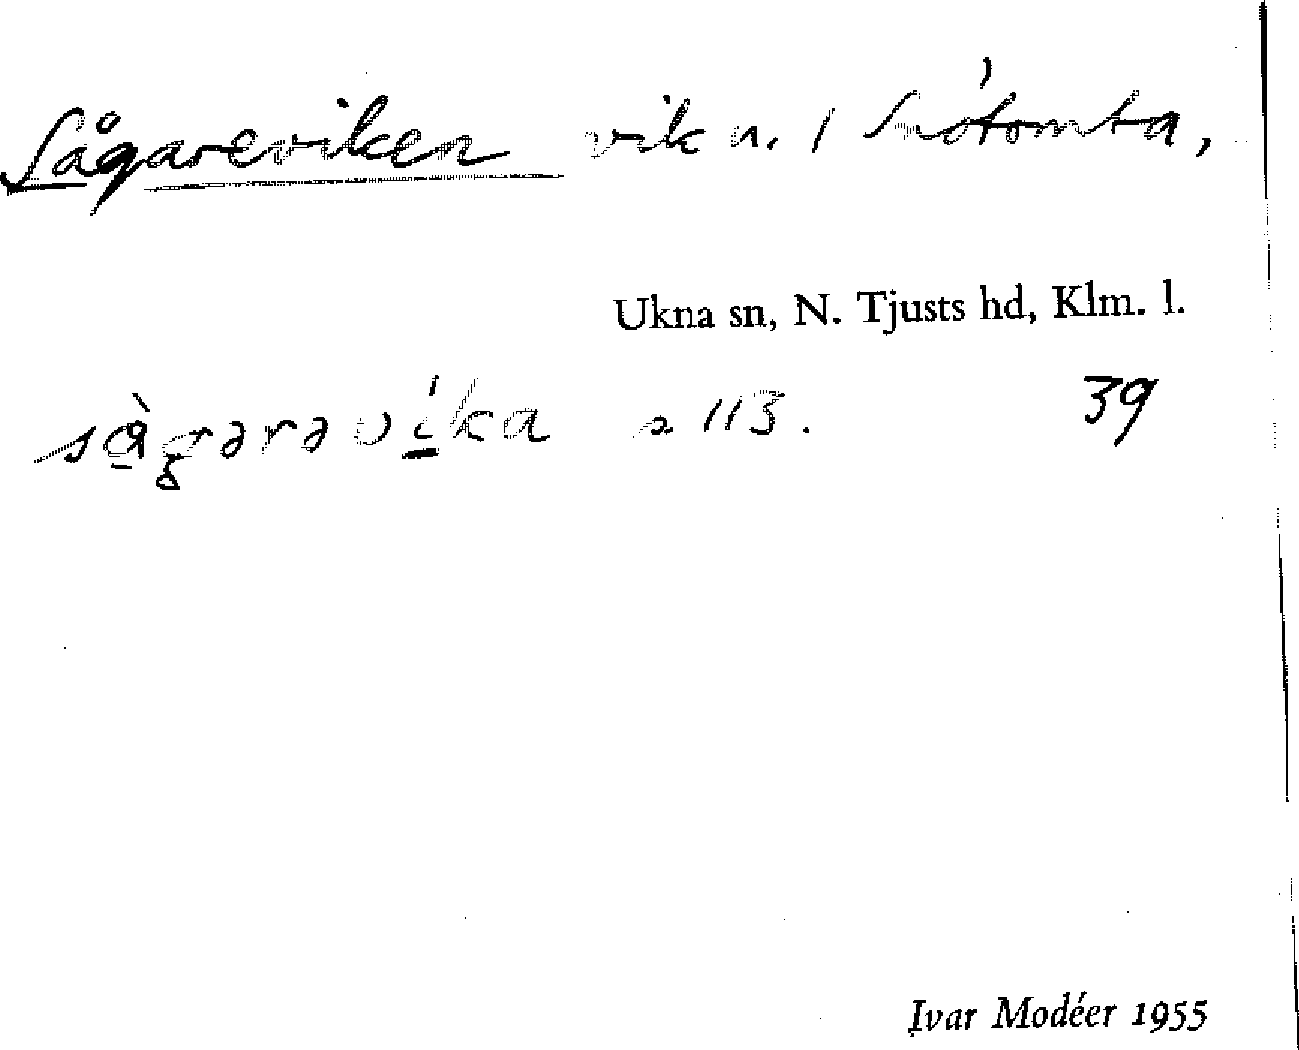 Sågareviken vik n. i
Ukna sn, N. Tjusts hd, Klm. l.
sàgarəvíka s 113. 39
Ivar Modéer 1955